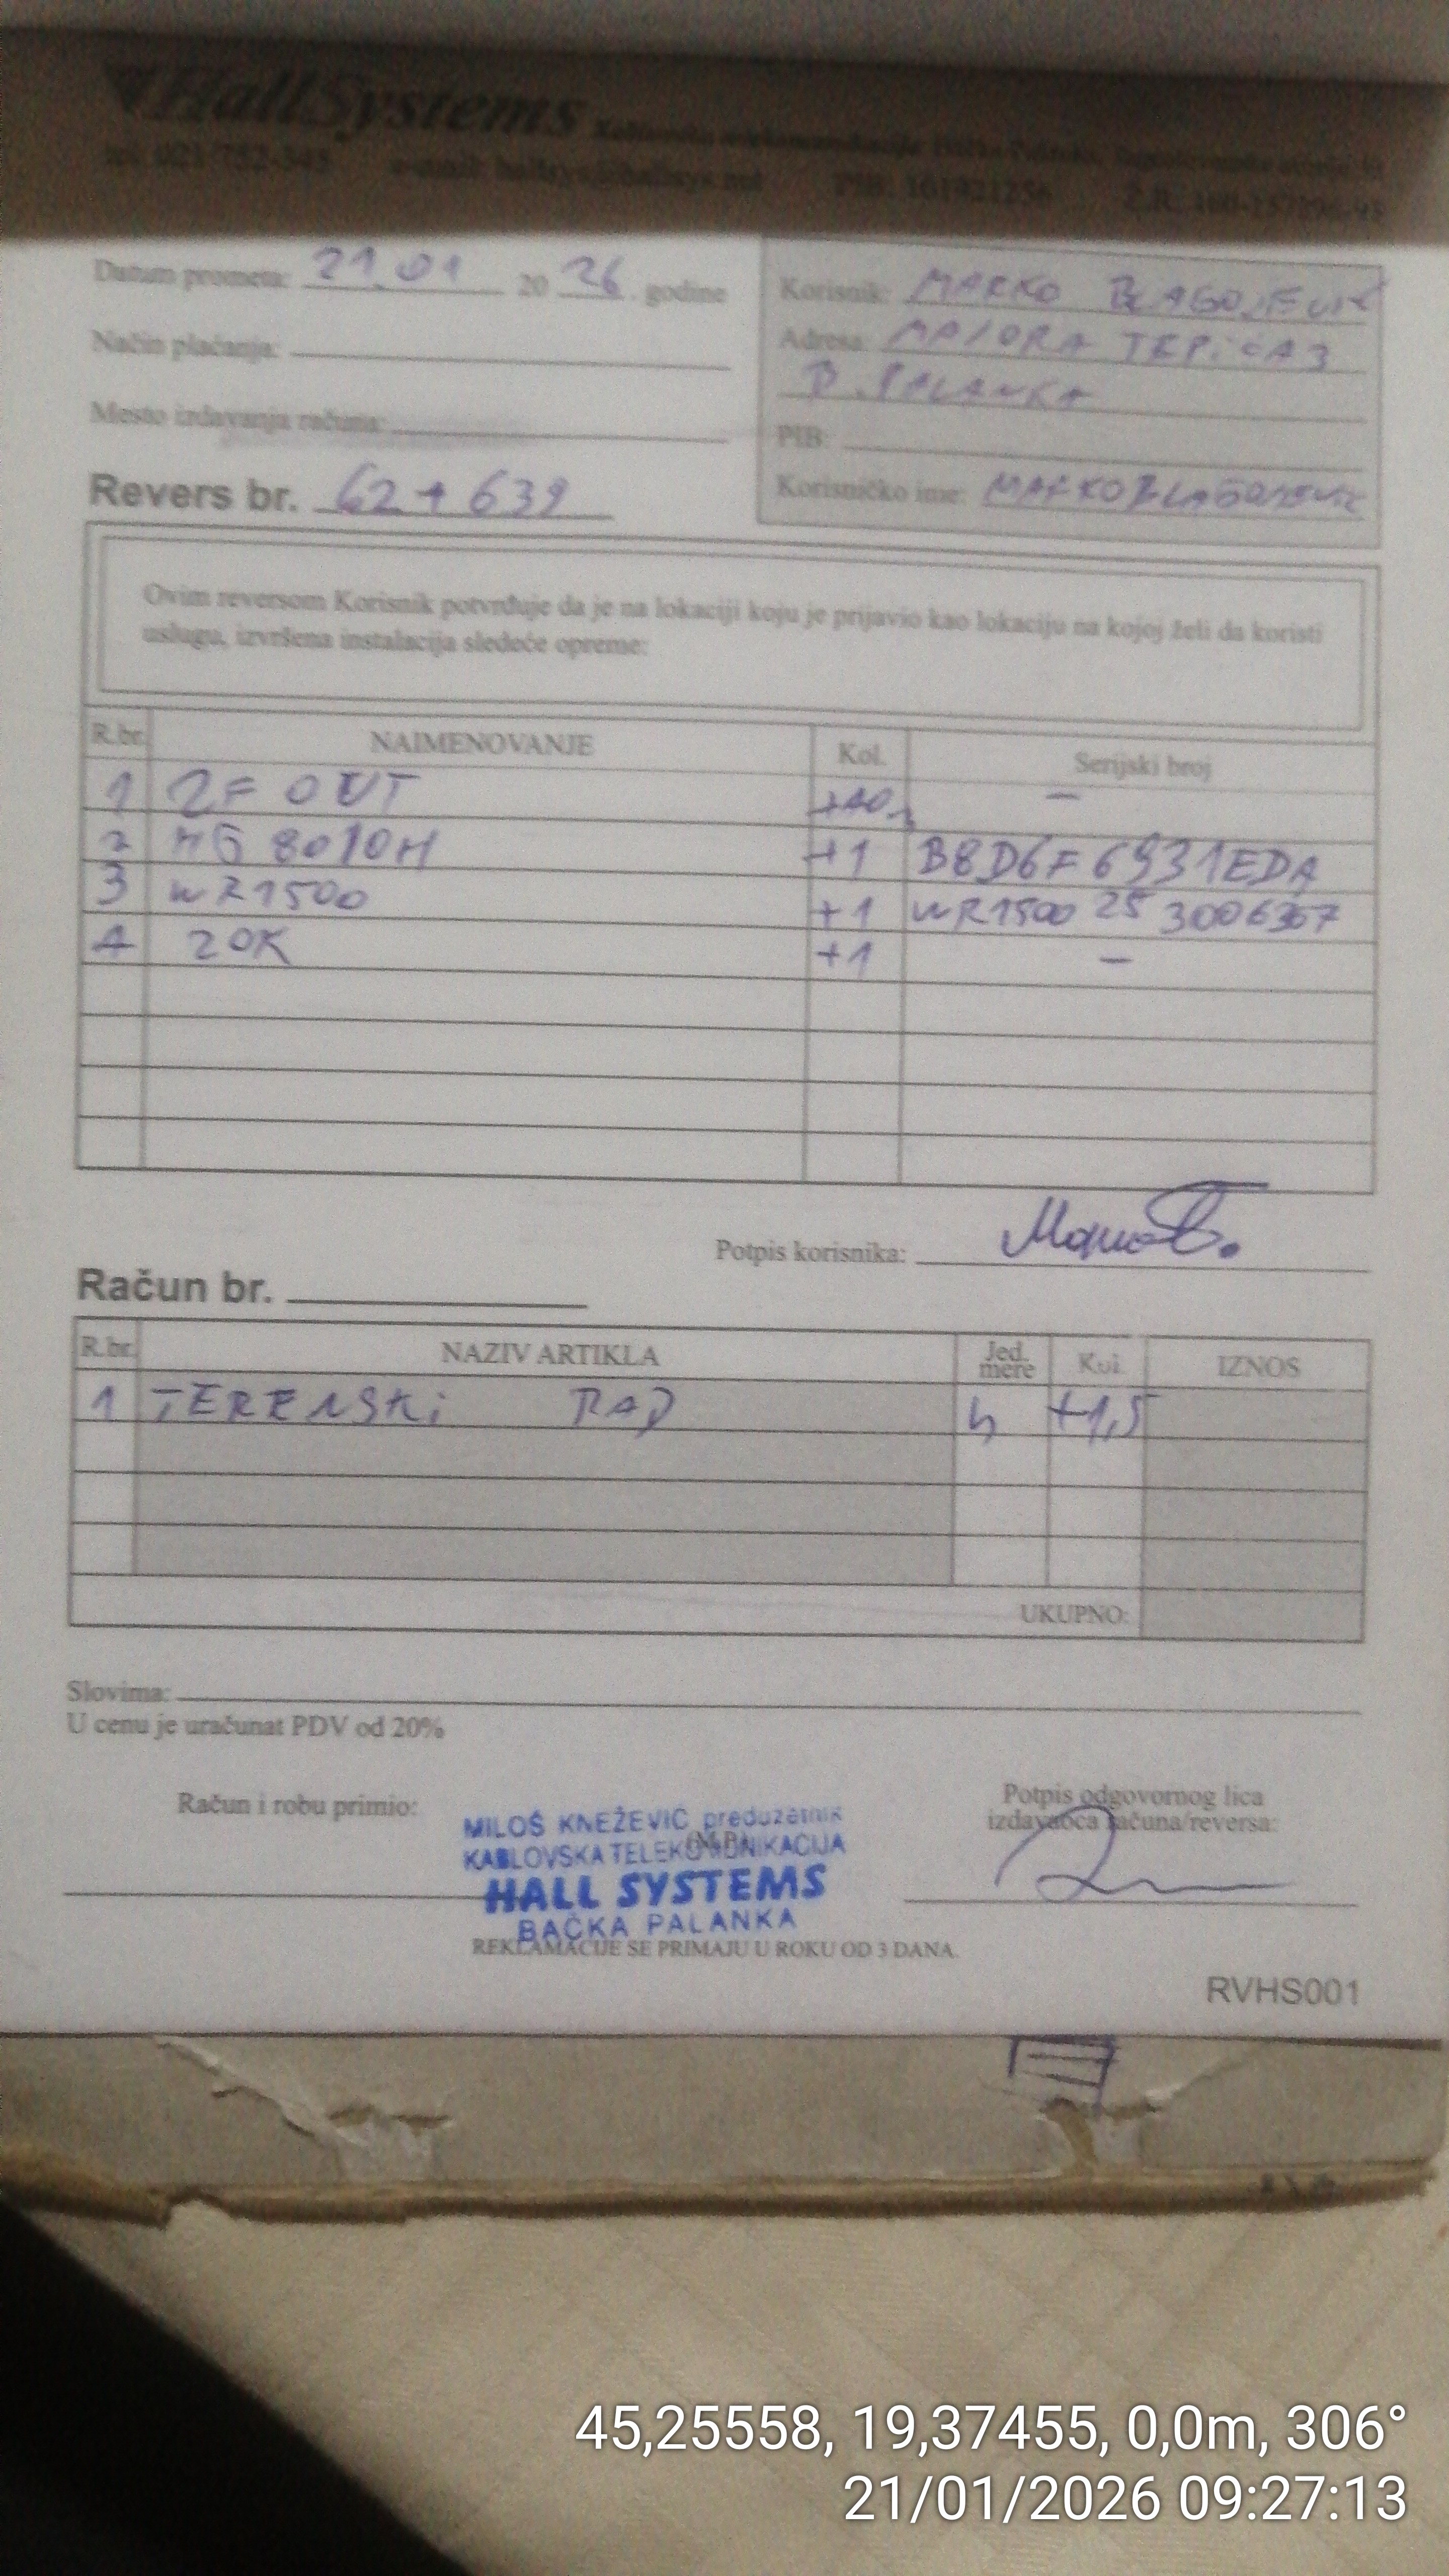 HallSystems
tel: 021/752-345 e-mail: hallsys@hallsys.net PIB: 101921256 Ž.R.
Datum prometa: 21.01 2026. godine
Način plaćanja:
Mesto izdavanja računa:
Revers br. 62+639
Korisnik: MARKO BLAGOJEVIĆ
Adresa: MAJORA TEPIĆA 3
B. PALANKA
PIB:
Korisničko ime: MARKOBLAGOJEVIC
Ovim reversom Korisnik potvrđuje da je na lokaciji koju je prijavio kao lokaciju na kojoj želi da koristi
uslugu, izvršena instalacija sledeće opreme:
R.br. NAIMENOVANJE Kol. Serijski broj
1 2F OUT -
2 HG 8010H +1 B8D6F6931EDA
3 WR1500 +1 WR1500 25 3006367
4 ZOK +1 -
Potpis korisnika:
Račun br.
R.br. NAZIV ARTIKLA Jed. mere Kol. IZNOS
1 TERENSKI RAD h +1,5
UKUPNO:
Slovima:
U cenu je uračunat PDV od 20%
Račun i robu primio:
Potpis odgovornog lica
izdavaoca računa/reversa:
MILOŠ KNEŽEVIĆ preduzetnik
KABLOVSKA TELEKOMUNIKACIJA
HALL SYSTEMS
BAČKA PALANKA
REKLAMACIJE SE PRIMAJU U ROKU OD 3 DANA.
RVHS001
45,25558, 19,37455, 0,0m, 306°
21/01/2026 09:27:13